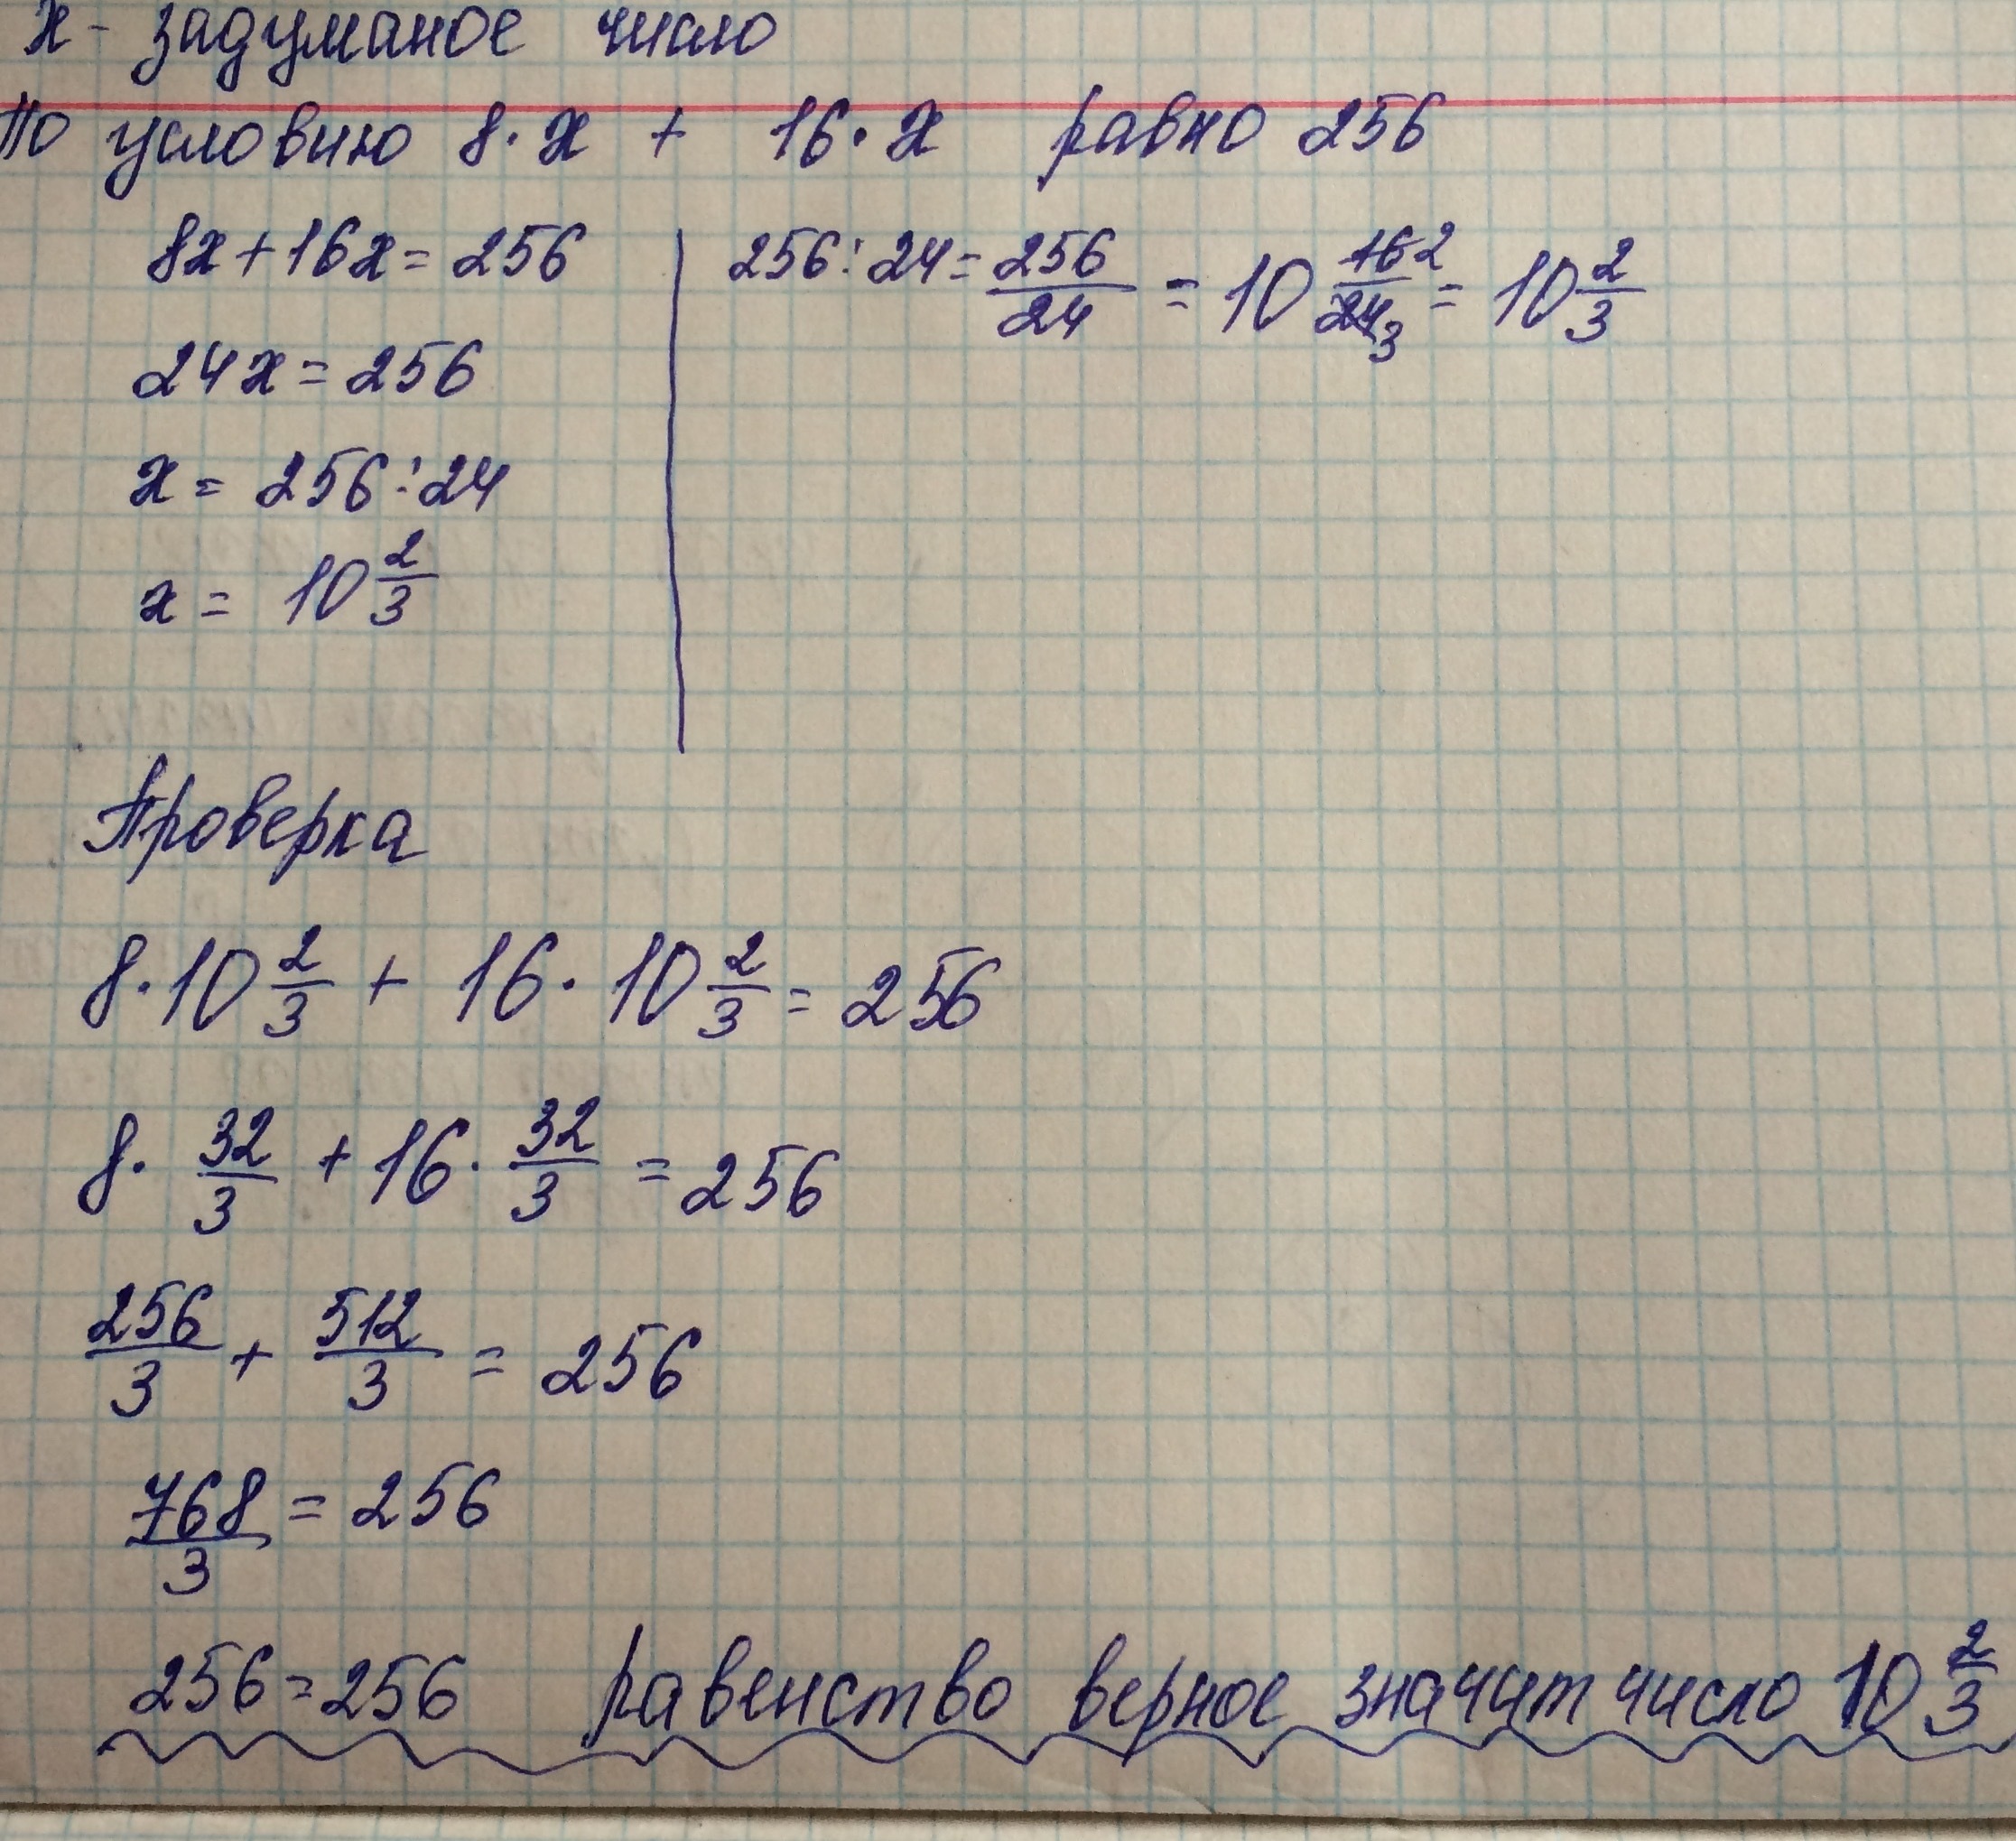 x - задуманое число
По условию 8·x + 16·x равно 256
8x+16x=256
24x=256
x = 256:24
x = 10 2/3
256:24=256/24 = 10 16 2/24 3 = 10 2/3
Проверка
8·10 2/3 + 16·10 2/3 = 256
8·32/3 + 16·32/3 = 256
256/3 + 512/3 = 256
768/3 = 256
256=256 равенство верное значит число 10 2/3